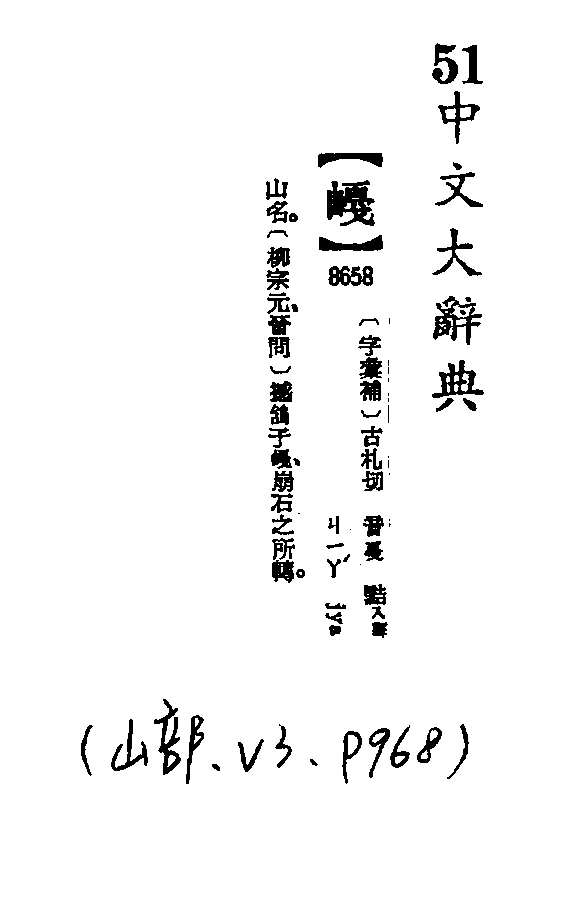 51中文大辭典
【嵕】
8658
〔字彙補〕古札切 音戛 黠入聲
ㄐㄧㄚˊ jya
山名。〔柳宗元、晉問〕撼鴿子嵕、崩石之所轉。
(山部、V3、P968)